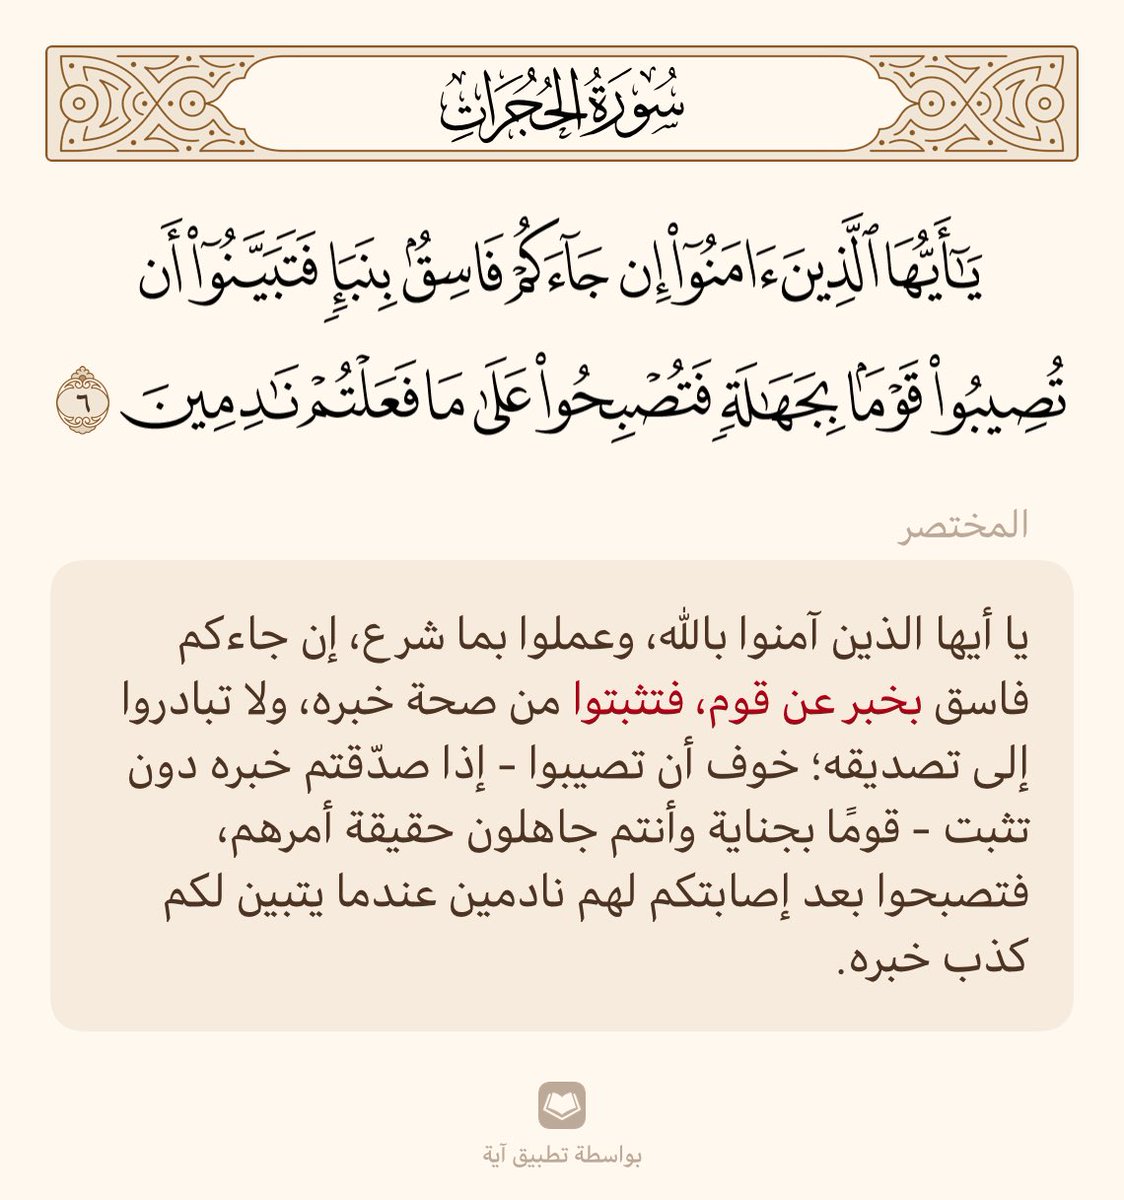 سُورَةُ الحُجُرَاتِ
يَٰٓأَيُّهَا ٱلَّذِينَ ءَامَنُوٓا۟ إِن جَآءَكُمْ فَاسِقٌۢ بِنَبَإٍ فَتَبَيَّنُوٓا۟ أَن
تُصِيبُوا۟ قَوْمًۢا بِجَهَٰلَةٍ فَتُصْبِحُوا۟ عَلَىٰ مَا فَعَلْتُمْ نَٰدِمِينَ ٦
المختصر
يا أيها الذين آمنوا بالله، وعملوا بما شرع، إن جاءكم
فاسق بخبر عن قوم، فتثبتوا من صحة خبره، ولا تبادروا
إلى تصديقه؛ خوف أن تصيبوا - إذا صدّقتم خبره دون
تثبت - قومًا بجناية وأنتم جاهلون حقيقة أمرهم،
فتصبحوا بعد إصابتكم لهم نادمين عندما يتبين لكم
كذب خبره.
بواسطة تطبيق آية